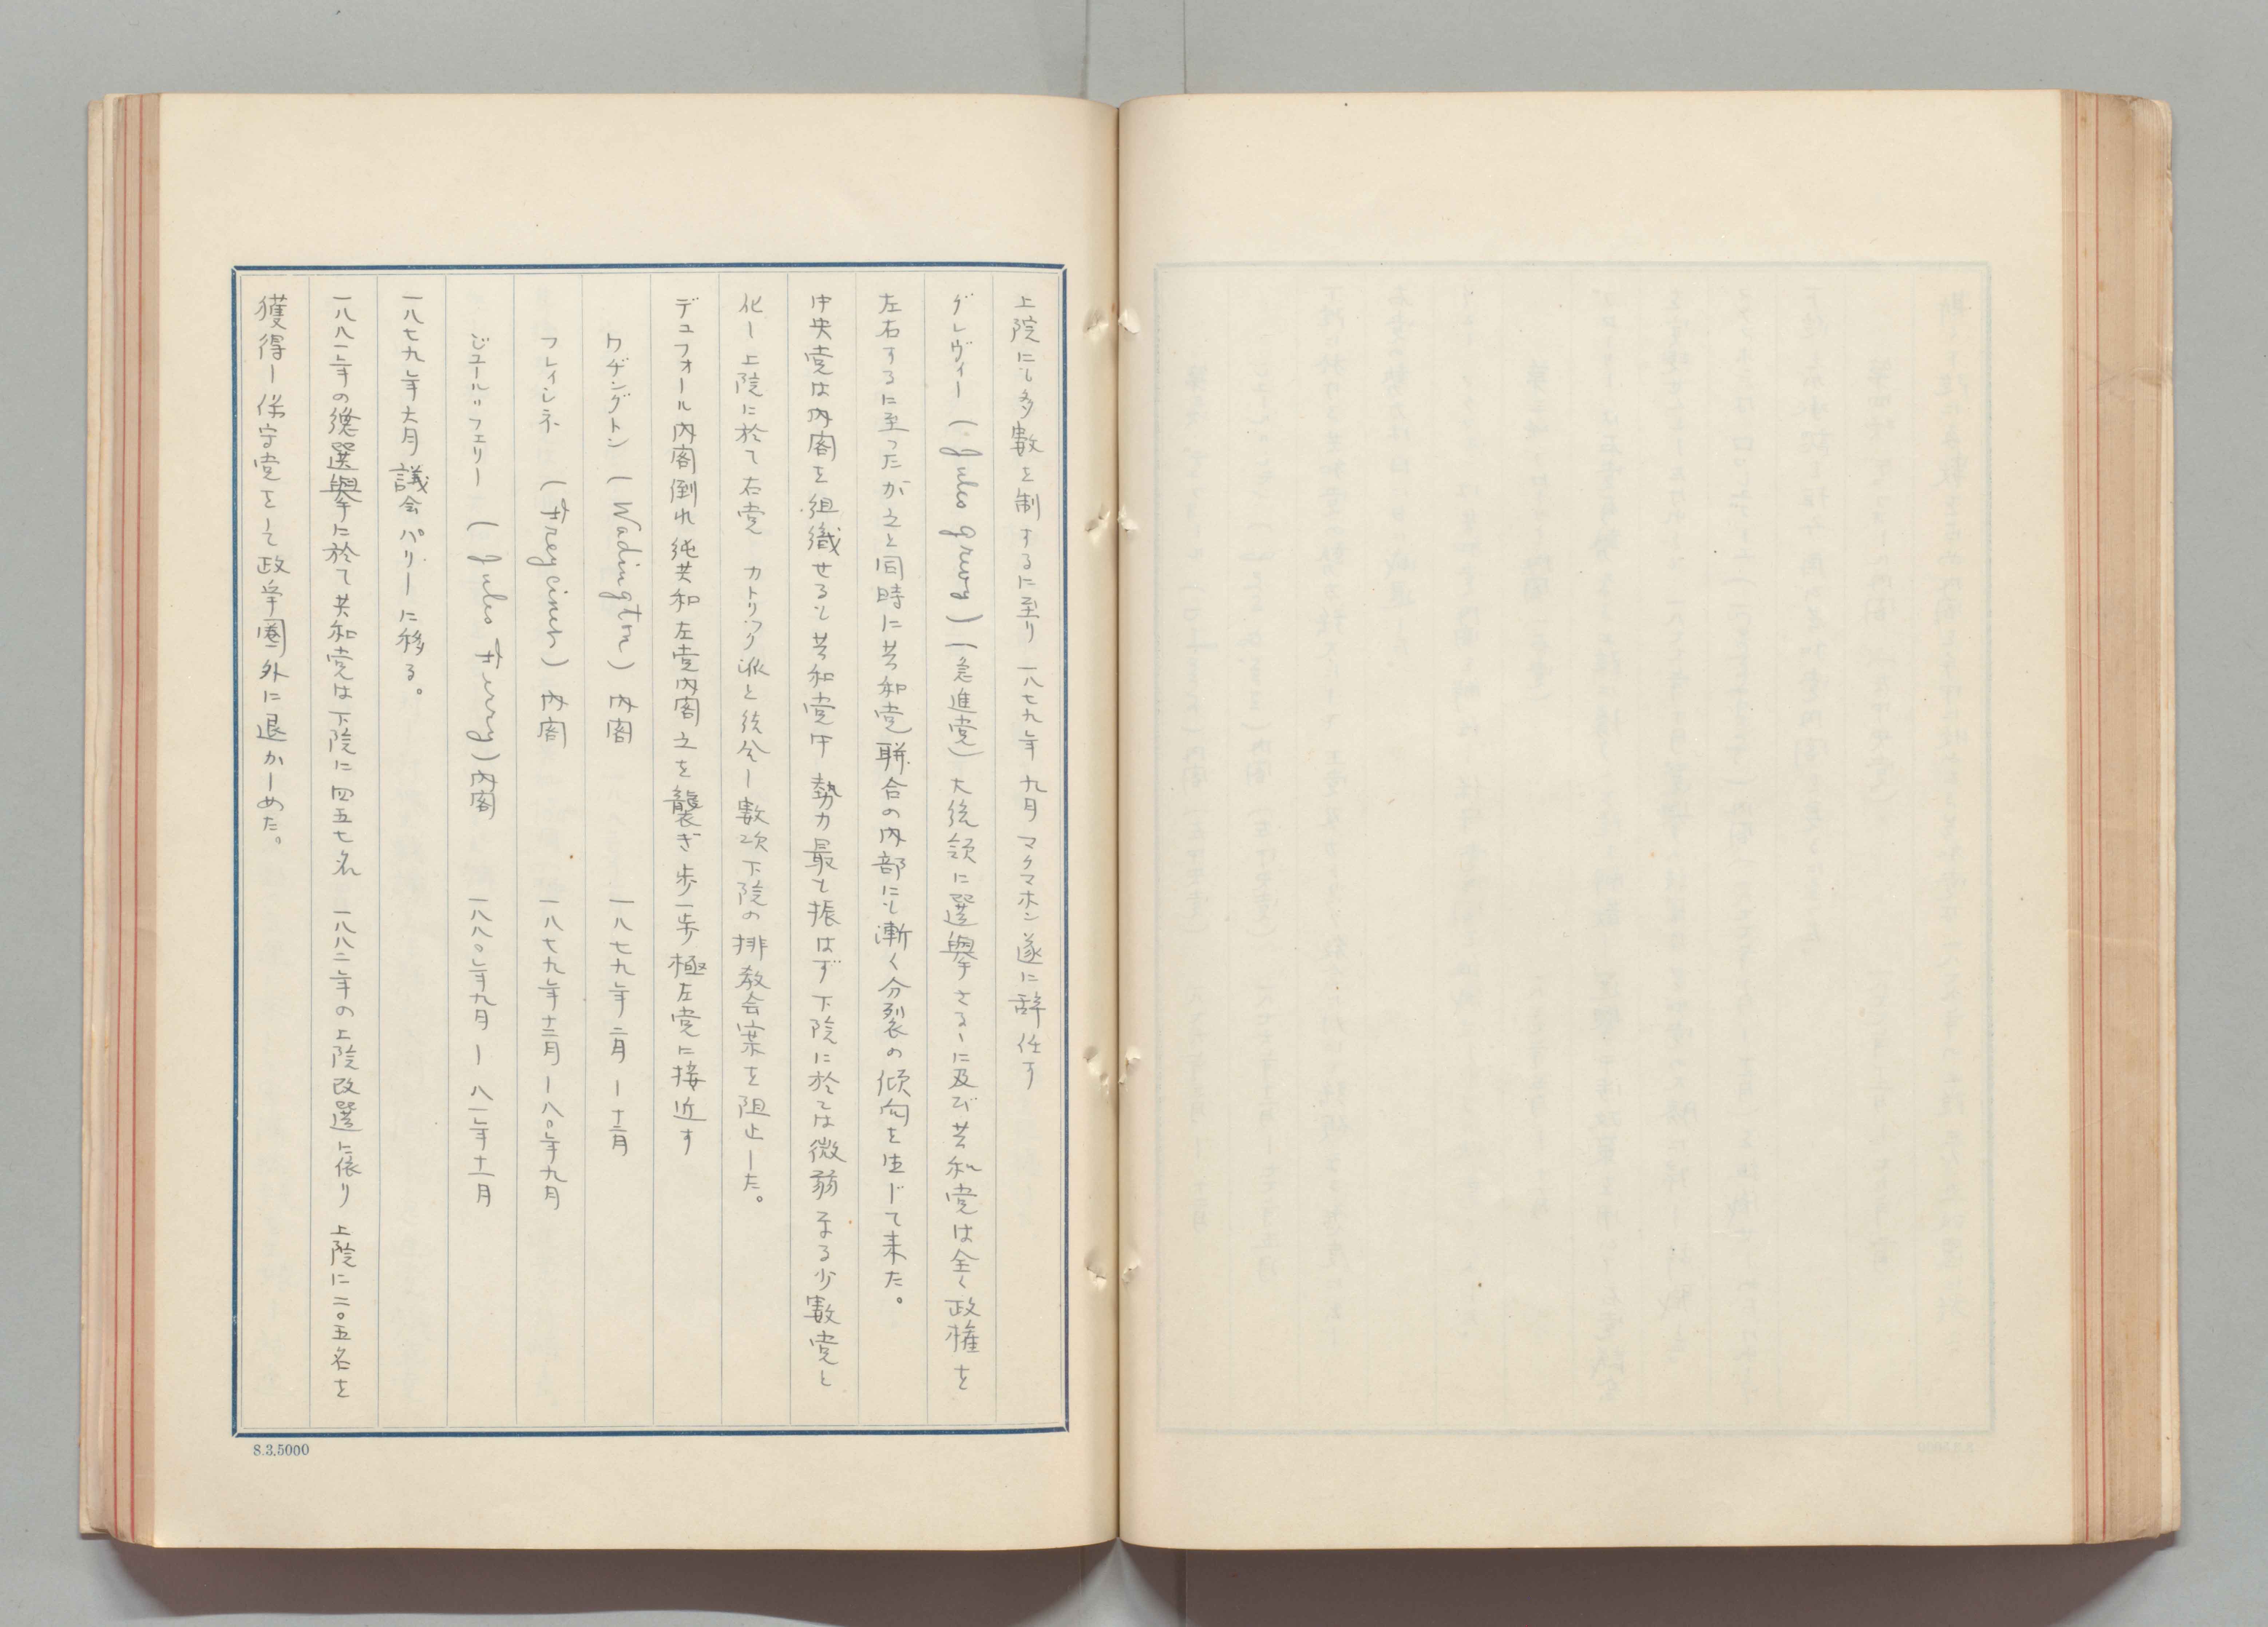 上院にも多數を制するに至り 一八七九年九月 マクマホン遂に辞任す
グレヴィー (Jules Grevy) (急進党) 大統領に選擧さるゝに及び共和党は全く政権を
左右するに至ったが之と同時に共和党聯合の内部にも漸く分裂の傾向を生じて来た。
中央党は内閣を組織せるも共和党中勢力最も振はず下院に於ては微弱なる少數党と
化し上院に於て右党 カトリック派と結合し數次下院の排教会案を阻止した。
デュフォール内閣倒れ純共和左党内閣之を襲ぎ歩一歩極左党に接近す
ワヂングトン (Wadington) 内閣 一八七九年二月ー十二月
フレイシネ (Freycinet) 内閣 一八七九年十二月ー八〇年九月
ジュール〃フェリー (Jules Ferry) 内閣 一八八〇年九月ー八一年十一月
一八七九年六月 議会パリーに移る。
一八八一年の總選擧に於て共和党は下院に四五七名 一八八二年の上院改選に依り 上院に二〇五名を
獲得し保守党をして政爭圏外に退かしめた。
8.3.5000